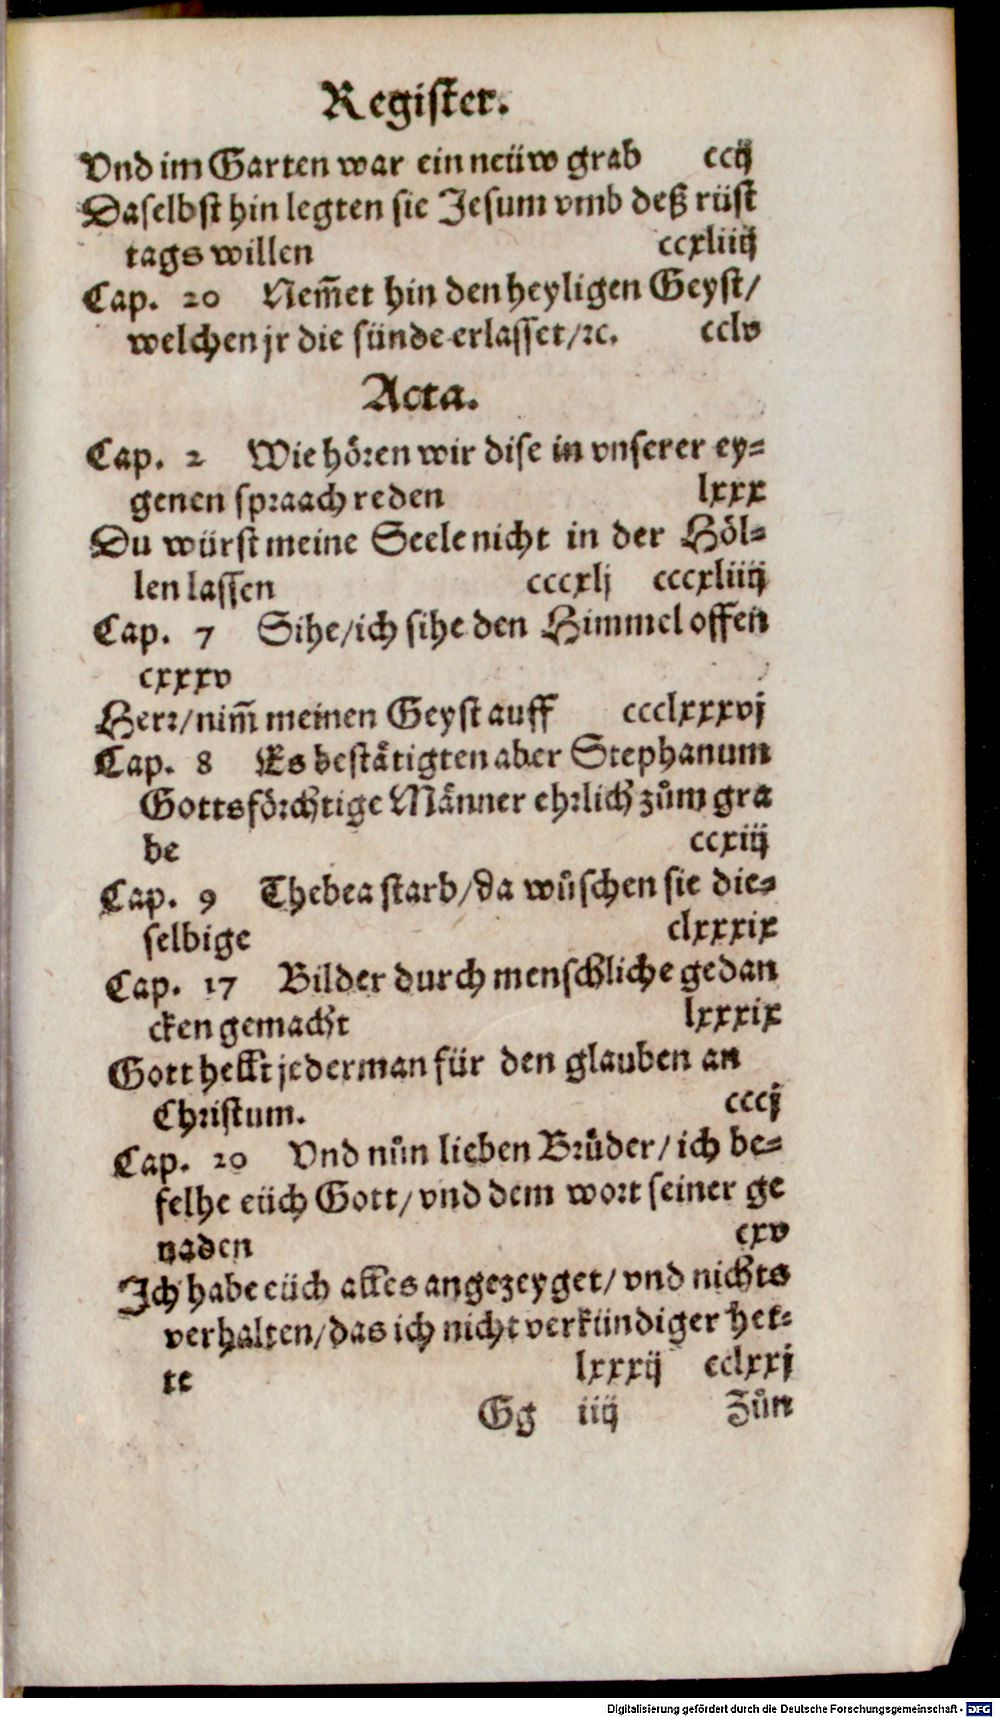 Register.
Vnd im Garten war ein neüw grab ccij
Daselbst hin legten sie Jesum vmb deß rüst
tags willen ccxliiij
Cap. 20 Nem̃et hin den heyligen Geyst/
welchen jr die sünde erlasset/ꝛc. cclv
Acta.
Cap. 2 Wie hören wir dise in vnserer ey⸗
genen spraach reden lxxx
Du würst meine Seele nicht in der Höl⸗
len lassen cccxlj cccxliiij
Cap. 7 Sihe/ich sihe den Himmel offen
cxxxv
Herr/nim̃ meinen Geyst auff ccclxxxvj
Cap. 8 Es bestätigten aber Stephanum
Gottsförchtige Männer ehrlich zům gra
be ccxiij
Cap. 9 Thebea starb/da wůschen sie die⸗
selbige clxxxix
Cap. 17 Bilder durch menschliche gedan
cken gemacht lxxxix
Gott hellt jederman für den glauben an
Christum. cccj
Cap. 20 Vnd nůn lieben Brůder/ ich be⸗
felhe eüch Gott/ vnd dem wort seiner ge
naden cxv
Ich habe eüch alles angezeyget/ vnd nichts
verhalten/das ich nicht verkündiget het⸗
te lxxxij cclxxj
Gg iiij Zůn
Digitalisierung gefördert durch die Deutsche Forschungsgemeinschaft - DFG